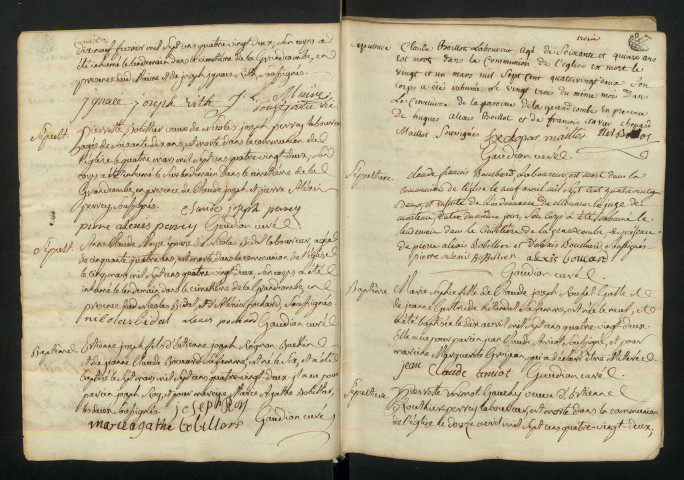 dix neuf fevrier mil sept cens quatre vingt deux, son corps a
été inhumé le lendemain dans le cimetiere de la Grandcombe, en
presence de
ignace joseph
Sepult.
Pierrette Bobillier veuve de Nicolas joseph perrey laboureur
agée de soixante dix ans, est morte dans la communion de
l'Eglise le quatre mars mil sept cens quatre vingt deux, son
corps a été inhumé le lendemain dans le cimetiere de la
Grandcombe, en presence de Claude joseph et pierre Alexis
perrey, soussignés.
claude joseph perrey
pierre alexis perrey Gaudion curé
Sepult.
Anne Claude
de cinquante quatre ans est morte dans la communion de l'église
le cinq mars mil sept cens quatre vingt deux, son corps a été
inhumé le lendemain dans le cimetiere de la Grandcombe en
presence de Nicolas Bidal, et d'Alexis pochard, soussignés
nicolas bidal alexis pochard Gaudion curé
Baptême
Etienne joseph fils d'Etienne joseph
et de jeanne Claude
baptisé le sept mars mil sept cens quatre vingt deux. il a eu pour
parrein joseph Roy, et pour marreine Marie Agathe Bobillier,
les deux soussignés. joseph Roy
marie agathe bobillier Gaudion curé
Sepulture
Claude Boillot Laboureur agé de soixante et quinze ans
est mort dans la Communion de l'église est mort le
vingt et un mars mil sept cent quatre vingt deux. Son
corps a été inhumé le vingt trois du même mois Dans
le Cimetiere de la paroisse de la grandcombe en presence
de hugues alexis Boillot et de francois xavier chopard
Maillot soussignés
Gaudion curé
Sepulture
Claude francois Bouchard, laboureur, est mort dans la
communion de l'église le neuf avril mil sept cent quatre vingt
deux, et ensuite de l'ordonnance de Monsieur le juge de
morteau, datée du même jour, son corps a été inhumé le
lendemain dans le Cimetiere de la grandcombe en presence
de pierre alexis Bobillier et d'alexis Bouchard soussignés
pierre alexis Bobillier alexis bouhard
Gaudion curé
Baptême
Marie Sophie fille de Claude joseph
de jeanne
a été baptisée le dix avril mil sept cens quatre vingt deux
elle a eu pour parrein jean Claude Amiot soussigné, et pour
marreine Marguerite Guyon, qui a declaré être illiterée
jean Claude amiot Gaudion curé
Sepulture
Pierrette
perrey laboureur, est morte dans la communion
de l'église le douze avril mil sept cens quatre-vingt-deux,